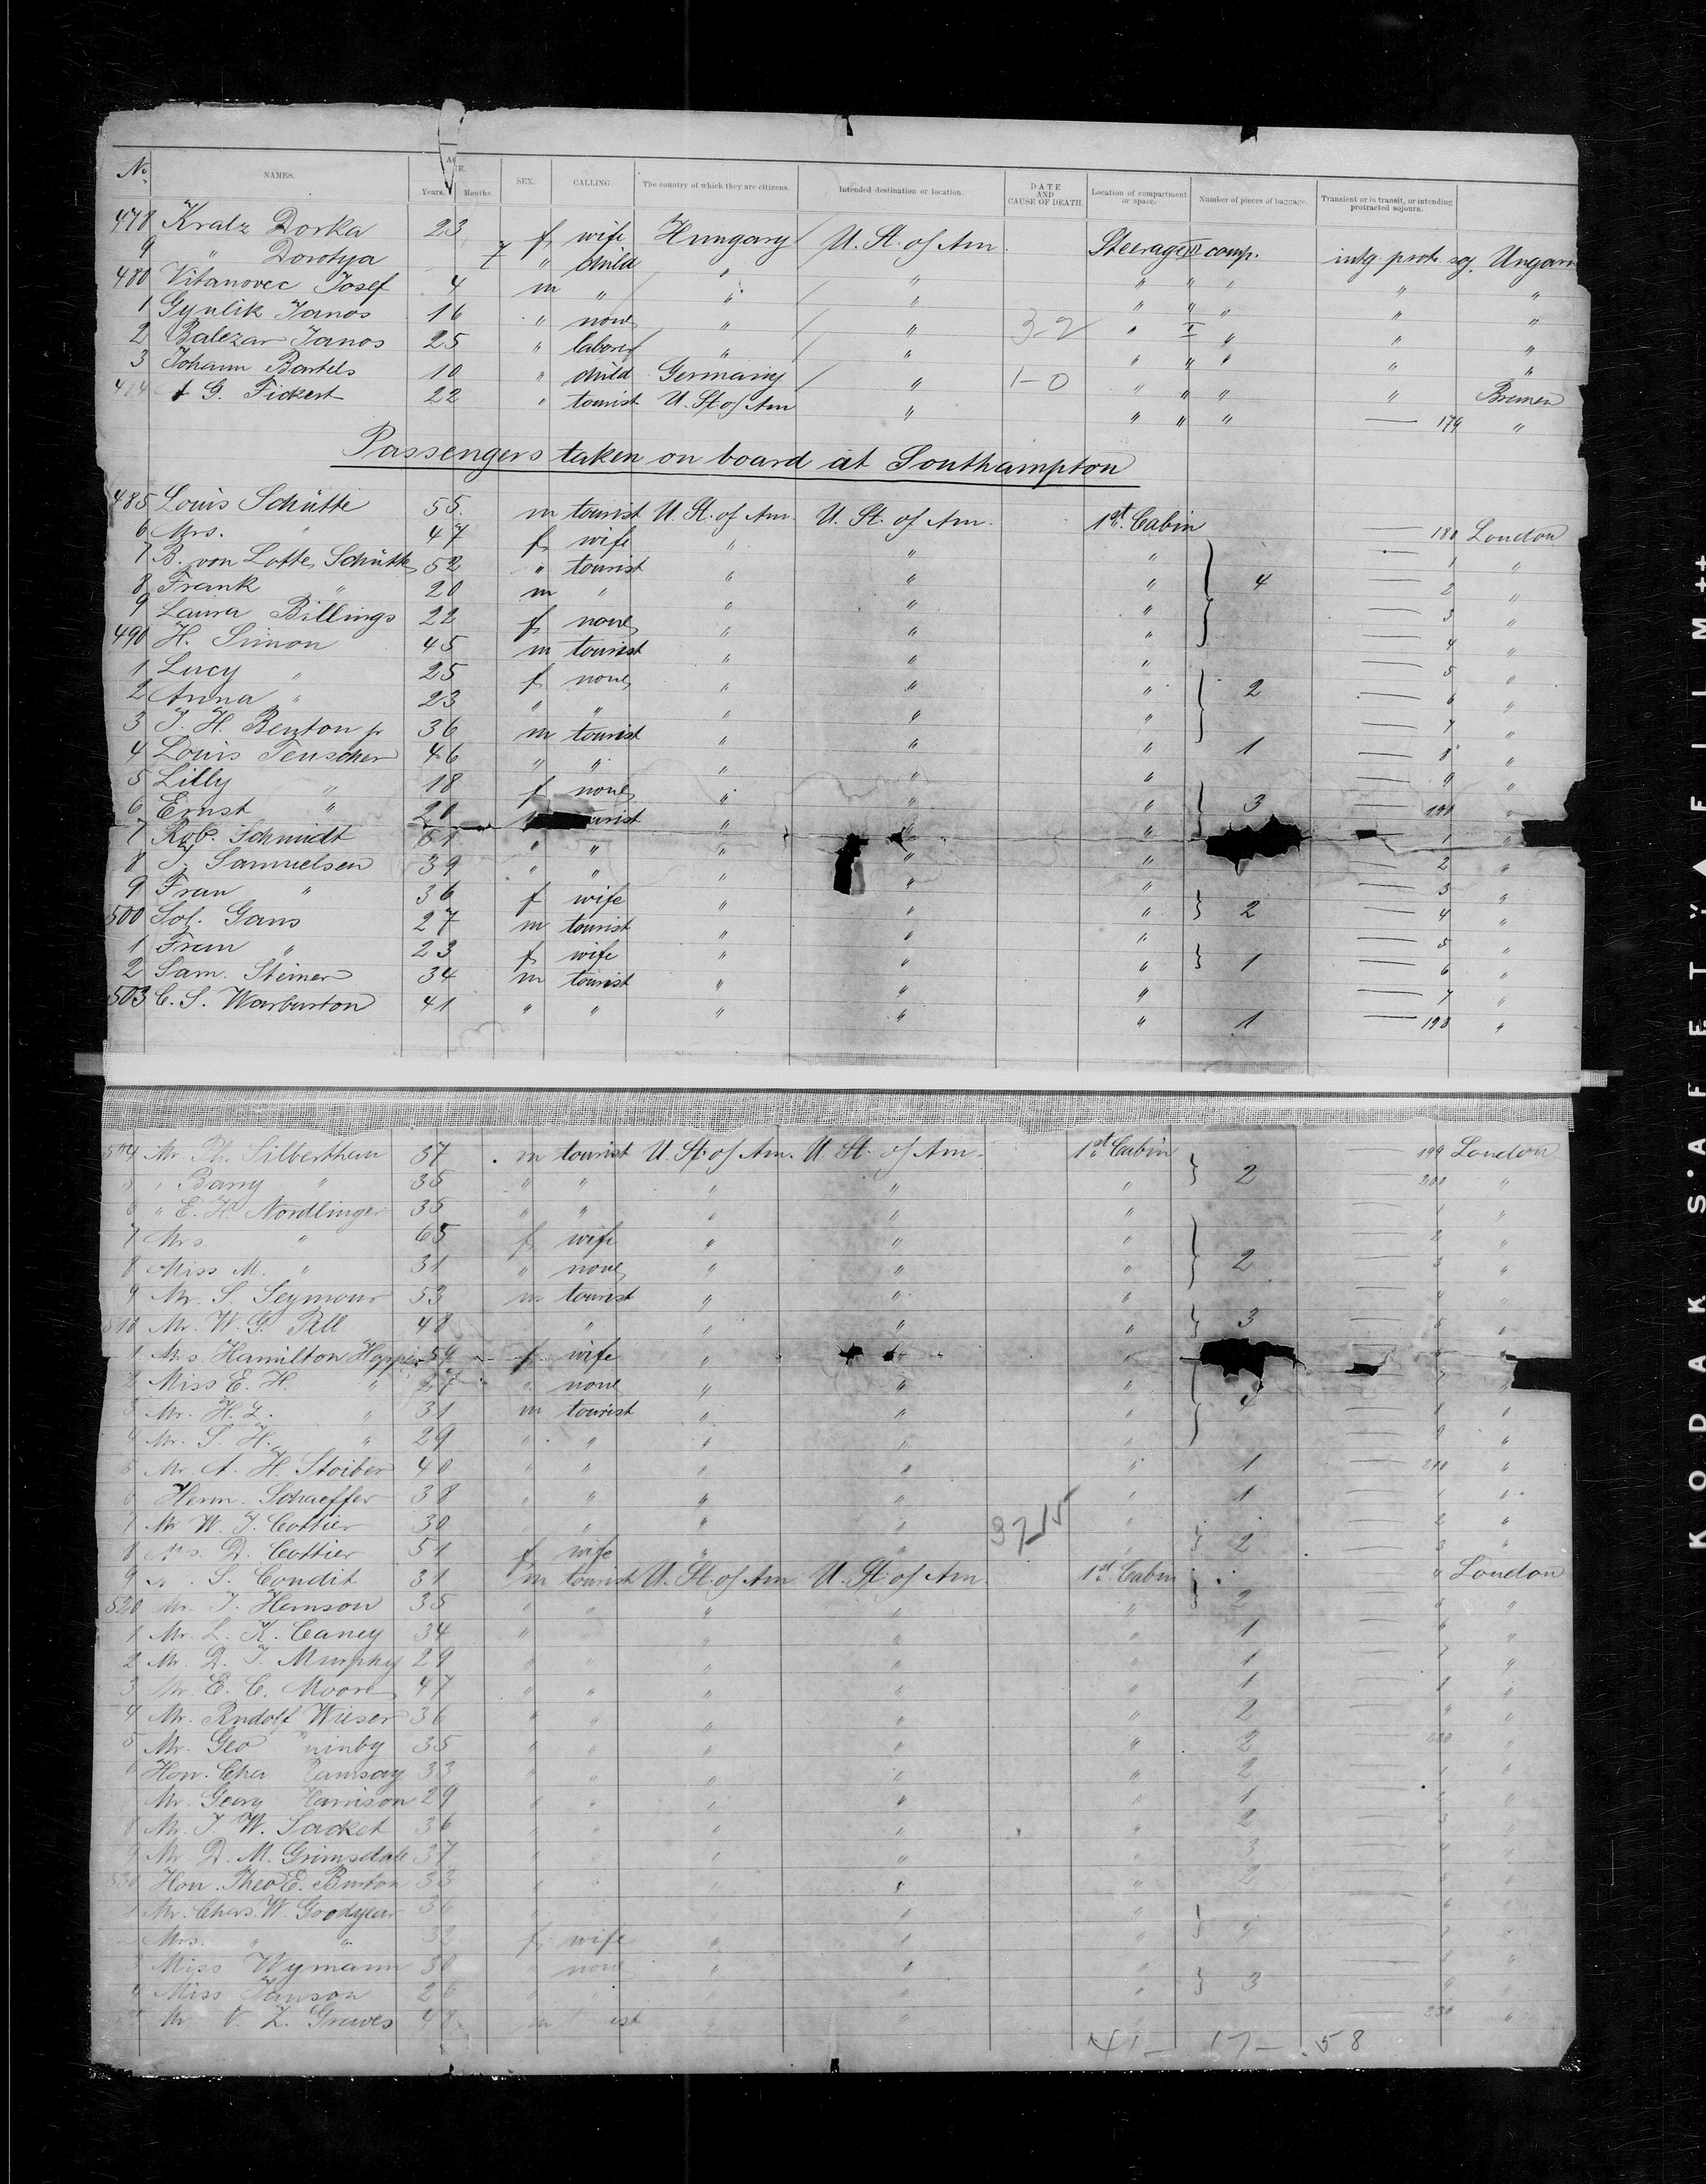 No. NAMES. AGE. Years. Months. SEX. CALLING. The country of which they are citizens. Intended destination or location. DATE AND CAUSE OF DEATH. Location of compartment or space. Number of pieces of baggage. Transient or is transit, or intending protracted sojourn.
478 Kratz Dorka 23 f wife Hungary U. St. of Am. Steerage II comp. intg. protr. soj. Ungarn
9 " Dorotya 7 " child " " " " " " "
480 Vitanovec Josef 4 m " " " " " " " "
1 Gyulik Janos 16 " none " " 3-2 " I " " "
2 Balezar Janos 25 " laborer " " " " " " "
3 Johann Bartels 10 " child Germany " 1-0 " " " " Bremen
484 A G. Fickert 22 " tourist U. St. of Am " " " " — 179 "
Passengers taken on board at Southampton
485 Louis Schütte 55 m tourist U. St. of Am. U. St. of Am. 1st. Cabin — 180 London
6 Mrs. " 47 f wife " " " — 1 "
7 B. von Lotte Schütte 52 " tourist " " " 4 — 2 "
8 Frank " 20 m " " " " — 3 "
9 Laura Billings 22 f none " " " — 4 "
490 H. Simon 45 m tourist " " " — 5 "
1 Lucy " 25 f none " " " 2 — 6 "
2 Anna " 23 " " " " " — 7 "
3 J. H. Renton jr 36 m tourist " " " 1 — 8 "
4 Louis Teuscher 46 " " " " " — 9 "
5 Lilly " 18 f none " " " 3 — 190 "
6 Ernst " 20 " " " — 1 "
7 Rob. Schmidt 51 " " " " " — 2 "
8 J. Samuelsen 39 " " " " " — 3 "
9 Frau " 36 f wife " " " 2 — 4 "
500 Sol. Gans 27 m tourist " " " — 5 "
1 Frau " 23 f wife " " " 1 — 6 "
2 Sam. Steiner 34 m tourist " " " — 7 "
503 C. S. Warburton 41 " " " " " 1 — 198 "
504 Mr. Ph. Silberthau 37 m tourist U. St. of Am. U. St. of Am. 1st. Cabin — 199 London
5 " Barry " 35 " " " " " 2 — 200 "
6 " E. H. Nordlinger 35 " " " " " — 1 "
7 Mrs " 65 f wife " " " — 2 "
8 Miss M. " 31 " none " " " 2 — 3 "
9 Mr. S. Seymour 53 m tourist " " " — 4 "
510 Mr. W. G. Pell 48 " " " " 3 — 5 "
1 Mrs. Hamilton Hoppe 54 f wife " " " — 6 "
2 Miss E. H. " 27 " none " " " 4 — 7 "
3 Mr. H. L. " 31 m tourist " " — 8 "
4 Mr. S. H. " 29 " " " " " — 9 "
5 Mr A. H. Stoiber 40 " " " " " 1 — 210 "
6 Herm. Schaeffer 38 " " " " " 1 — 1 "
7 Mr W. J. Cottier 30 " " " " 37-15 " — 2 "
8 Mrs. D. Cottier 51 f wife " " 2 — 3 "
9 S. Condit 31 m tourist U. St. of Am U. St. of Am 1st. Cabin 4 London
520 Mr. J. Hemson 35 " " " " " 2 — 5 "
1 Mr. L. K. Caney 34 " " " " 1 — 6 "
2 Mr. D. J. Murphy 29 " " " " " 1 — 7 "
3 Mr. E. C. Moore 47 " " " " " 1 — 8 "
4 Mr. Rudolf Wieser 36 " " " " " 2 — 9 "
5 Mr. Geo 35 " " " " " 2 — 220 "
6 Hon. Chas Ramsay 33 " " " " " 2 — 1 "
Mr. Georg Harrison 29 " " " " 1 — 2 "
8 Mr. J. W. Sacket 36 " " " " " 2 — 3 "
9 Mr D. M. Grimsdale 37 " " " " " 3 — 4 "
530 Hon. Theo E. Burton 33 " " " " 2 — 5 "
1 Mr. Chas. W. Goodyear 36 " " " — 6 "
Mrs. " " 32 f wife " " " — 7
3 Miss Wymann 30 " none " " " — 8 "
4 Miss Janson 26 " " 3 — 9 "
Mr L. Graves 48 m " " — 230 "
41- 17- 58
KODAK SAFETY FILM ++